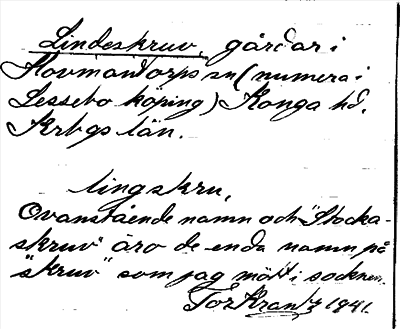 Lindeskruv, gårdar i
Hovmantorps sn (numera i
Lessebo köping) Konga hd,
Krbgs län.
lingskru,
Ovanstående namn och "Stocka-
skruv" äro de enda namn på
"skruv" som jag mött i socknen.
Tor Krantz 1941.